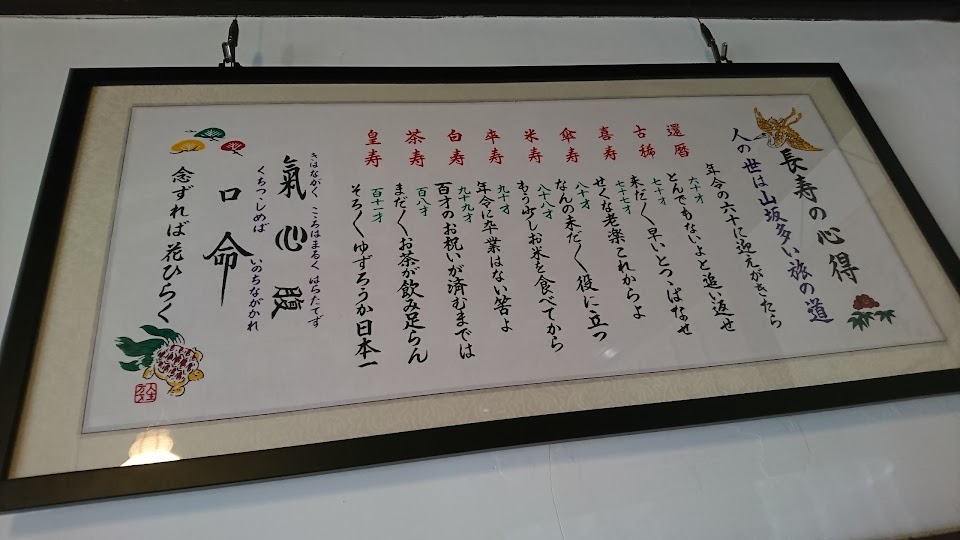 長寿の心得
人の世は山坂多い旅の道
年令の六十に迎えがきたら
還暦
六十才
とんでもないよと追い返せ
古稀
七十才
未だ〱早いとつっぱなせ
喜寿
七十七才
せくな老楽これからよ
傘寿
八十才
なんの未だ〱役に立つ
米寿
八十八才
もう少しお米を食べてから
卒寿
九十才
年令に卒業はない筈よ
白寿
九十九才
百才のお祝いが済むまでは
茶寿
百八才
まだ〱お茶が飲み足らん
皇寿
百十一才
そろ〱ゆずろうか日本一
きはながく こころはまるく はらたてず
氣 心 腹
くちつつしめば いのちながかれ
口 命
念ずれば花ひらく